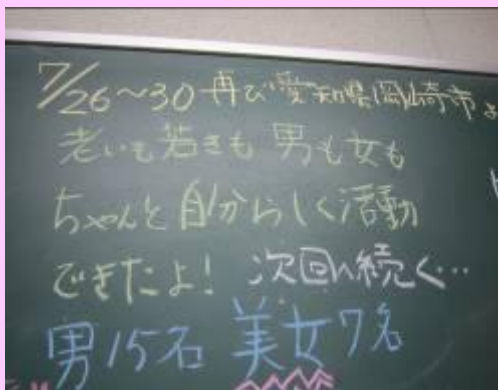 7/26〜30 再び愛知県岡崎市よ
老いも若きも 男も女も
ちゃんと自分らしく活動
できたよ! 次回へ続く…
男15名 美女7名